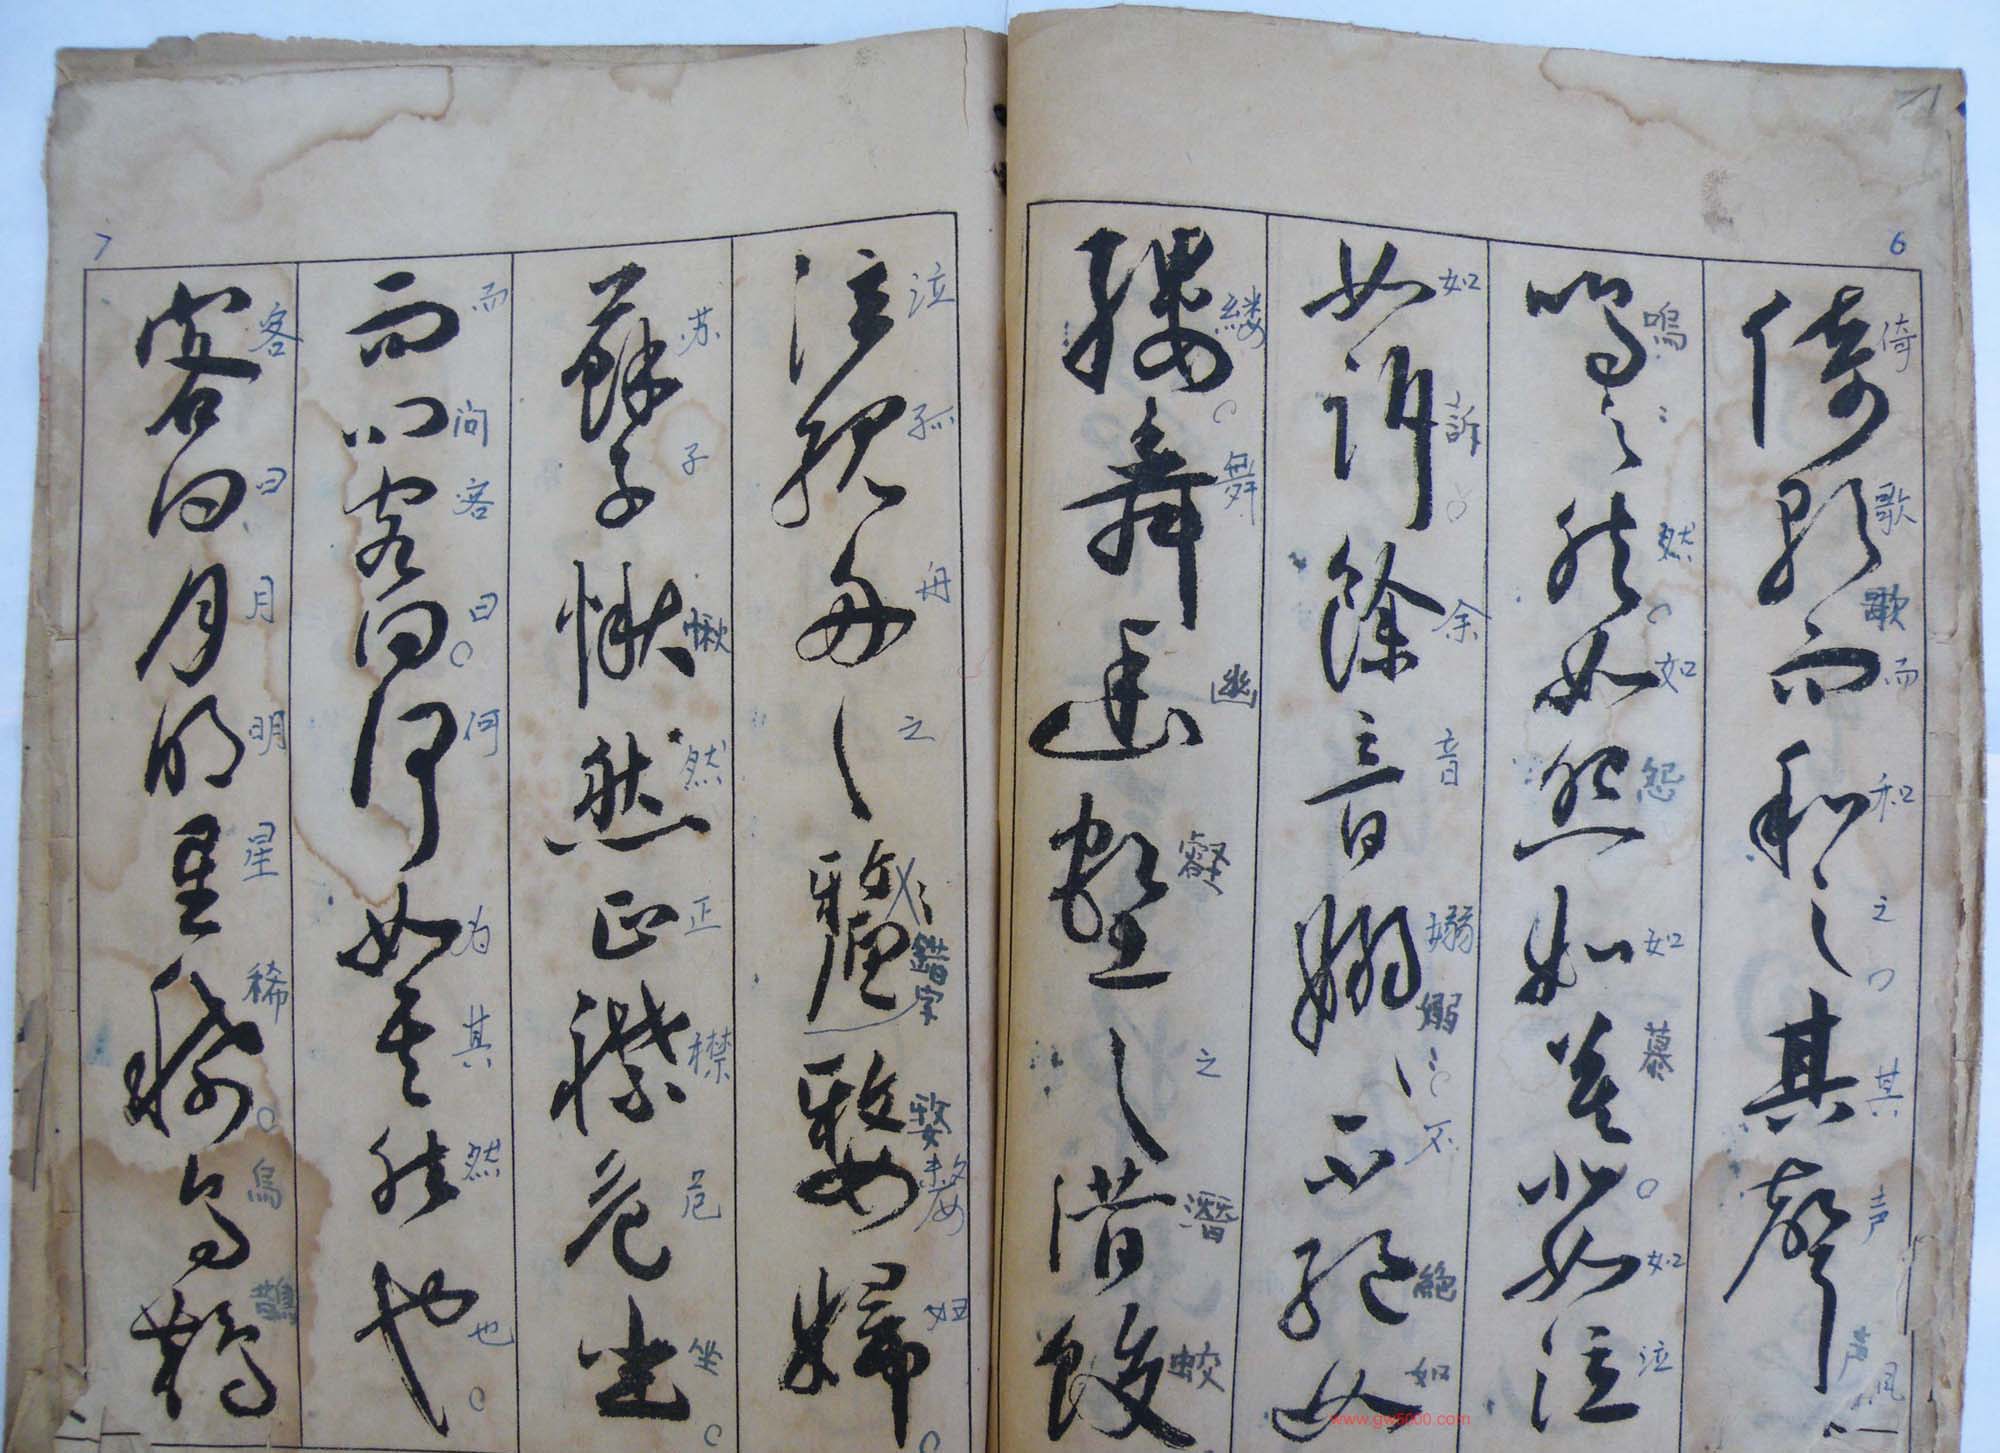 6
倚歌而和之其聲
倚歌歌而和之其声声
鳴〻然如怨如慕如如泣
鳴〻然如怨如慕如泣
如訴餘音嫋〻不絕如
如訴余音嫋嫋〻不絕如
縷舞幽壑之潛蛟
縷舞幽壑之潛蛟
7
泣孤舟之釐嫠婦
泣孤舟之錯字嫠嫠妇
蘇子愀然正襟危坐
苏子愀然正襟危坐
而問客曰何為其然也
而问客曰何为其然也
客曰月明星稀烏鵲
客曰月明星稀烏鵲
www.gw5000.com